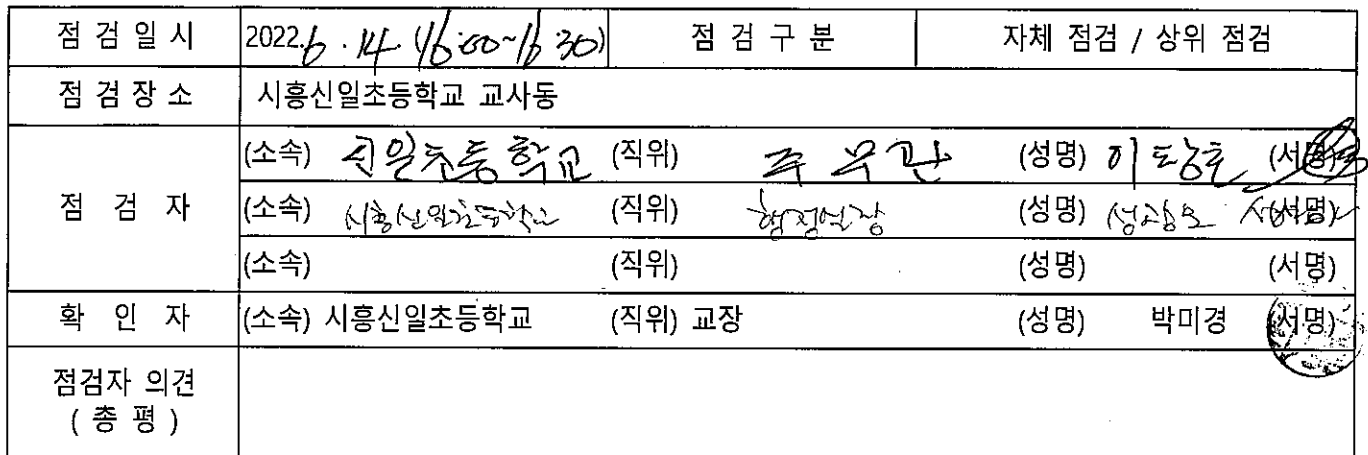 점 검 일 시 2022. 6. 14. (16:00~16:30) 점 검 구 분 자체 점검 / 상위 점검
점 검 장 소 시흥신일초등학교 교사동
(소속) 신일초등학교 (직위) 주무관 (성명) (서명)
점 검 자 (소속) 시흥신일초등학교 (직위) 행정실장 (성명) (서명)
(소속) (직위) (성명) (서명)
확 인 자 (소속) 시흥신일초등학교 (직위) 교장 (성명) 박미경 (서명)
점검자 의견
( 총 평 )